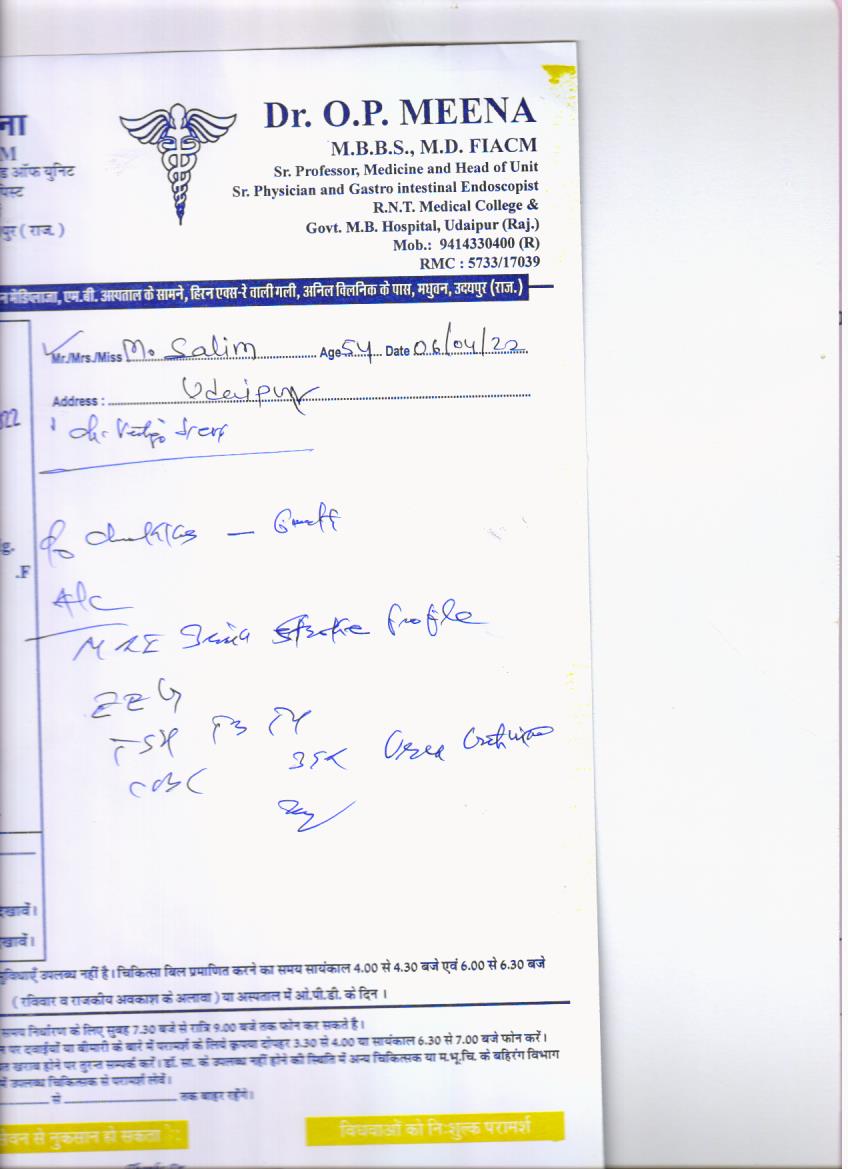 ना
M
ड ऑफ यूनिट
पिस्ट
पुर ( राज. )
Dr. O.P. MEENA
M.B.B.S., M.D. FIACM
Sr. Professor, Medicine and Head of Unit
Sr. Physician and Gastro intestinal Endoscopist
R.N.T. Medical College &
Govt. M.B. Hospital, Udaipur (Raj.)
Mob.: 9414330400 (R)
RMC : 5733/17039
न मेडिप्लाजा, एम.बी. अस्पताल के सामने, हिरन एक्स-रे वाली गली, अनिल क्लिनिक के पास, मधुवन, उदयपुर (राज.)
Mr./Mrs./Miss Mo Salim Age 54 Date 06/04/22
Address : Udaipur
g.
.F
MRI Stroke Profile
EEG
TSH T3 T4
Urea
CBC
देखावें।
देखावें।
सुविधाएँ उपलब्ध नहीं है। चिकित्सा बिल प्रमाणित करने का समय सायंकाल 4.00 से 4.30 बजे एवं 6.00 से 6.30 बजे
( रविवार व राजकीय अवकाश के अलावा ) या अस्पताल में ओ.पी.डी. के दिन ।
समय निर्धारण के लिए सुबह 7.30 बजे से रात्रि 9.00 बजे तक फोन कर सकते है।
न पर दवाईयों या बीमारी के बारे में परामर्श के लिये कृपया दोपहर 3.30 से 4.00 या सायंकाल 6.30 से 7.00 बजे फोन करें।
त खराब होने पर तुरन्त सम्पर्क करें। डॉ. सा. के उपलब्ध नहीं होने की स्थिति में अन्य चिकित्सक या म.भू.चि. के बहिरंग विभाग
में उपलब्ध चिकित्सक से परामर्श लेवें।
से तक बाहर रहेंगे।
सेवन से नुकसान हो सकता है
विधवाओं को निःशुल्क परामर्श